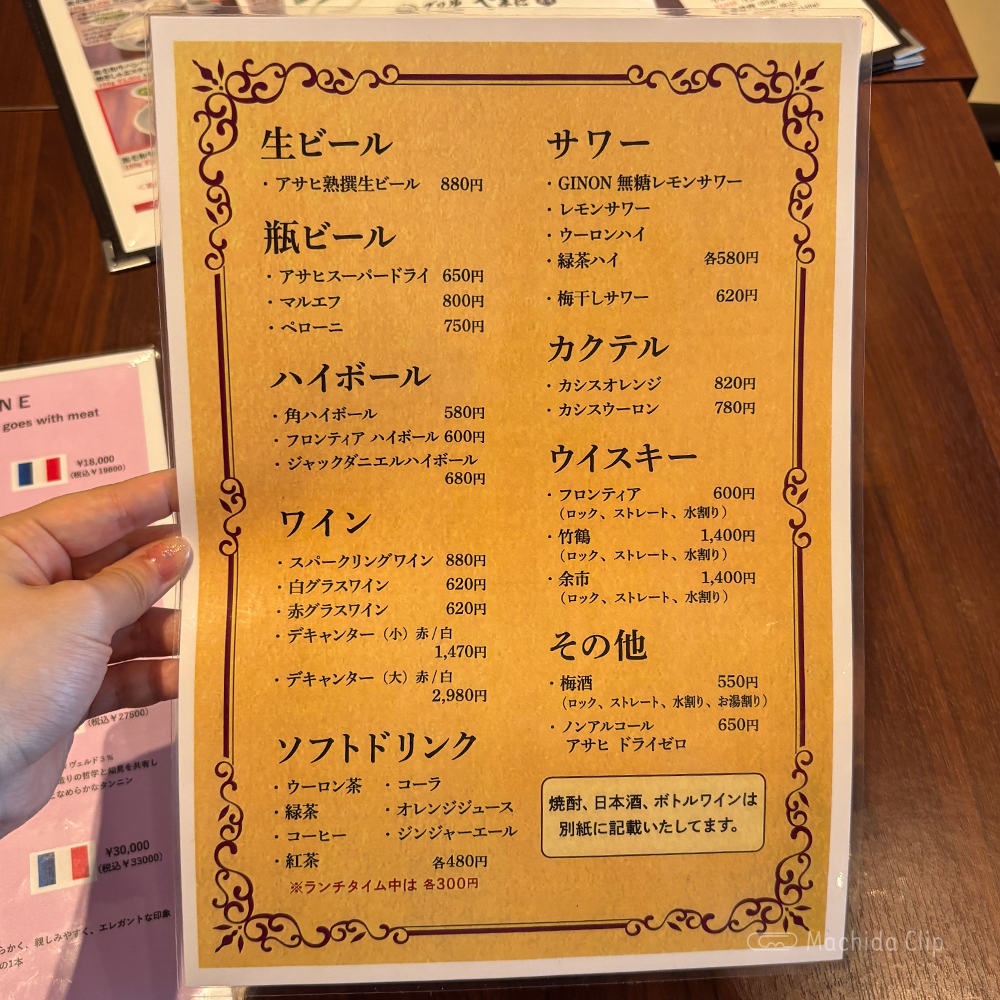 生ビール
・アサヒ熟撰生ビール 880円
瓶ビール
・アサヒスーパードライ 650円
・マルエフ 800円
・ペローニ 750円
ハイボール
・角ハイボール 580円
・フロンティア ハイボール 600円
・ジャックダニエルハイボール
680円
ワイン
・スパークリングワイン 880円
・白グラスワイン 620円
・赤グラスワイン 620円
・デキャンター（小）赤/白
1,470円
・デキャンター（大）赤/白
2,980円
ソフトドリンク
・ウーロン茶 ・コーラ
・緑茶 ・オレンジジュース
・コーヒー ・ジンジャーエール
・紅茶 各480円
※ランチタイム中は 各300円
サワー
・GINON 無糖レモンサワー
・レモンサワー
・ウーロンハイ
・緑茶ハイ 各580円
・梅干しサワー 620円
カクテル
・カシスオレンジ 820円
・カシスウーロン 780円
ウイスキー
・フロンティア 600円
（ロック、ストレート、水割り）
・竹鶴 1,400円
（ロック、ストレート、水割り）
・余市 1,400円
（ロック、ストレート、水割り）
その他
・梅酒 550円
（ロック、ストレート、水割り、お湯割り）
・ノンアルコール 650円
アサヒ ドライゼロ
焼酎、日本酒、ボトルワインは
別紙に記載いたしてます。
NE
goes with meat
¥18,000
(税込¥19800)
(税込¥27500)
ヴェルド3%
造りの哲学と知見を共有し
なめらかなタンニン
¥30,000
(税込¥33000)
らかく、親しみやすく、エレガントな印象
の1本
Machida Clip